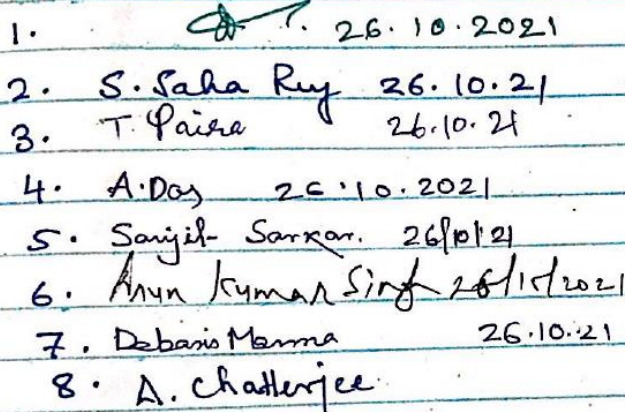 1. 26.10.2021
2. S. Saha Roy 26.10.21
3. T. Paira 26.10.21
4. A. Das 26.10.2021
5. Sanjit Sarkar. 26/10/21
6. Arun Kumar Singh 26/10/2021
7. Debasis Manna 26.10.21
8. A. Chatterjee